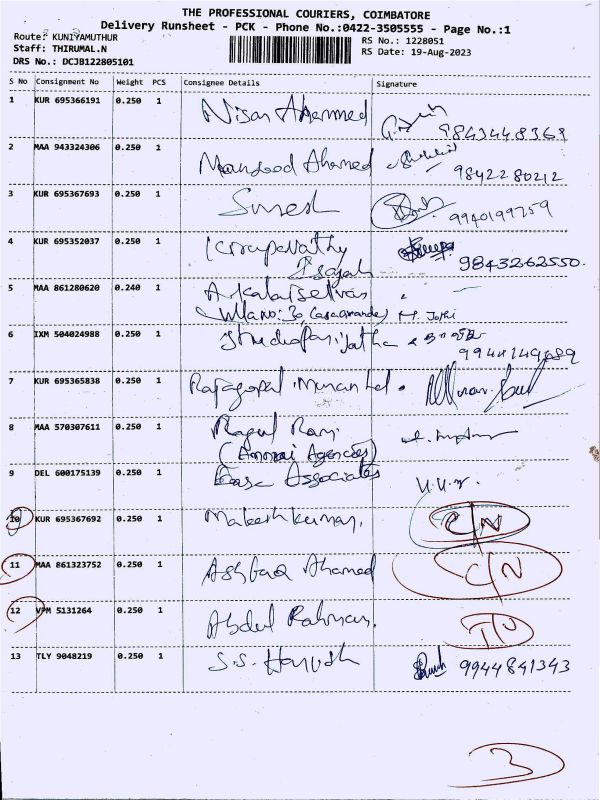 THE PROFESSIONAL COURIERS, COIMBATORE
Delivery Runsheet - PCK - Phone No.:0422-3505555 - Page No.:1
Route: KUNIYAMUTHUR
RS No.: 1228051
Staff: THIRUMAL.N
RS Date: 19-Aug-2023
DRS No.: DCJB122805101
S No Consignment No Weight PCS Consignee Details Signature
1 KUR 695366191 0.250 1 Nisar Ahammed 9843448368
2 MAA 943324306 0.250 1 Mansood Ahamed 9842280212
3 KUR 695367693 0.250 1 Suresh 9940199759
4 KUR 695352037 0.250 1 9843262550.
5 MAA 861280620 0.240 1 M. Jothi
6 IXM 504024988 0.250 1
7 KUR 695365838 0.250 1 Rajagopal
8 MAA 570307611 0.250 1 Ragul Ram
(Ammai Agencies)
9 DEL 600175139 0.250 1 Ease Associates
10 KUR 695367692 0.250 1 Makesh kumar. C/N
11 MAA 861323752 0.250 1 Ashfaq Ahamed C/N
12 VPM 5131264 0.250 1 Abdul Rahman.
13 TLY 9048219 0.250 1 S.S. Harish 9944841343
3